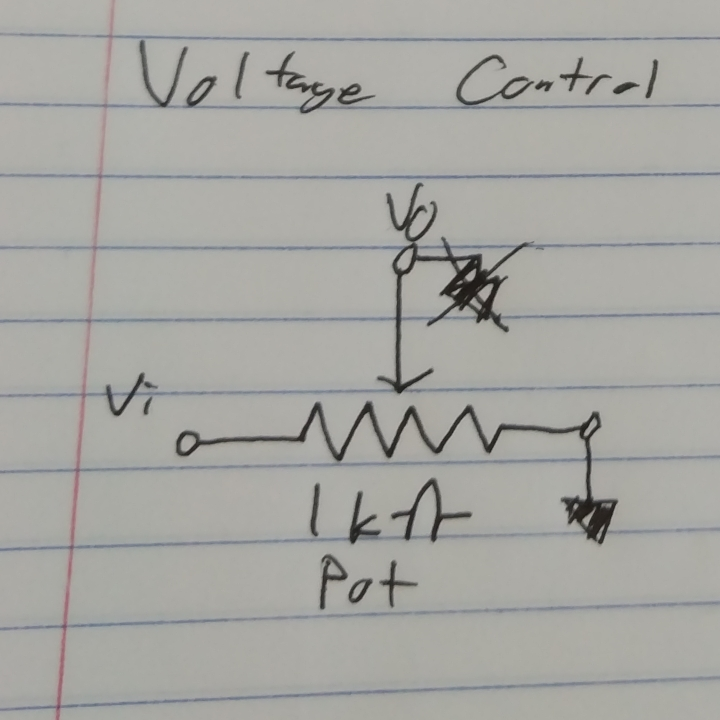 Voltage Control
Vo
Vi
1kΩ
Pot